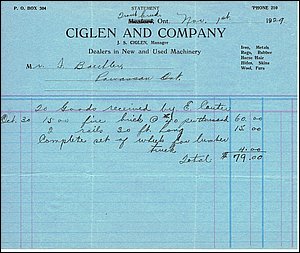 P. O. BOX 304 STATEMENT PHONE 210
Meaford, Ont. Nov. 1st 1929
CIGLEN AND COMPANY
J. S. CIGLEN, Manager
Dealers in New and Used Machinery
Iron, Metals
Rags, Rubber
Horse Hair
Hides, Skins
Wool, Furs
Mr.
Ont.
To Goods received by E
Oct. 30 1500 fire brick @ 60.00
2 rails 30 ft. long 15.00
Complete set of wheels for lumber
truck 4.00
Total $79.00